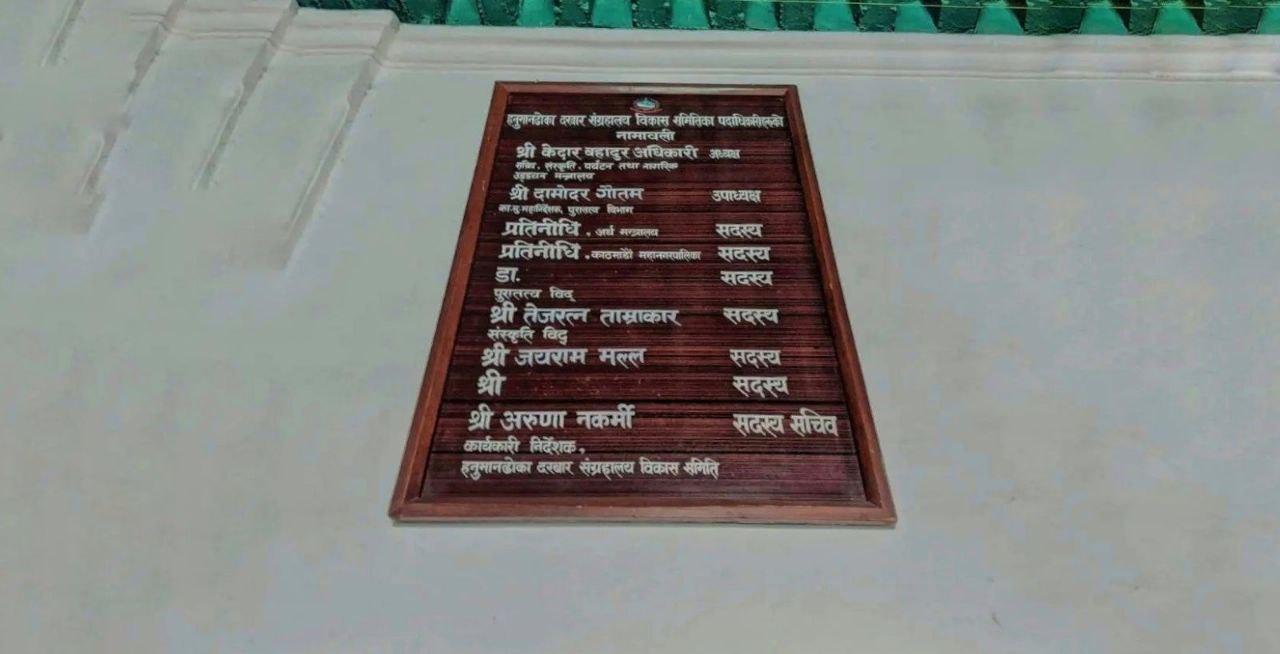 हनुमानढोका दरबार संग्रहालय विकास समितिका पदाधिकारीहरूको
नामावली
श्री केदार बहादुर अधिकारी अध्यक्ष
सचिव, संस्कृति, पर्यटन तथा नागरिक
उड्डयन मन्त्रालय
श्री दामोदर गौतम उपाध्यक्ष
का.मु.महानिर्देशक, पुरातत्व विभाग
प्रतिनीधि, अर्थ मन्त्रालय सदस्य
प्रतिनीधि, काठमाडौं महानगरपालिका सदस्य
डा. सदस्य
पुरातत्व विद्
श्री तेजरत्न ताम्राकार सदस्य
संस्कृति विद्
श्री जयराम मल्ल सदस्य
श्री सदस्य
श्री अरुणा नकर्मी सदस्य सचिव
कार्यकारी निर्देशक,
हनुमानढोका दरबार संग्रहालय विकास समिति